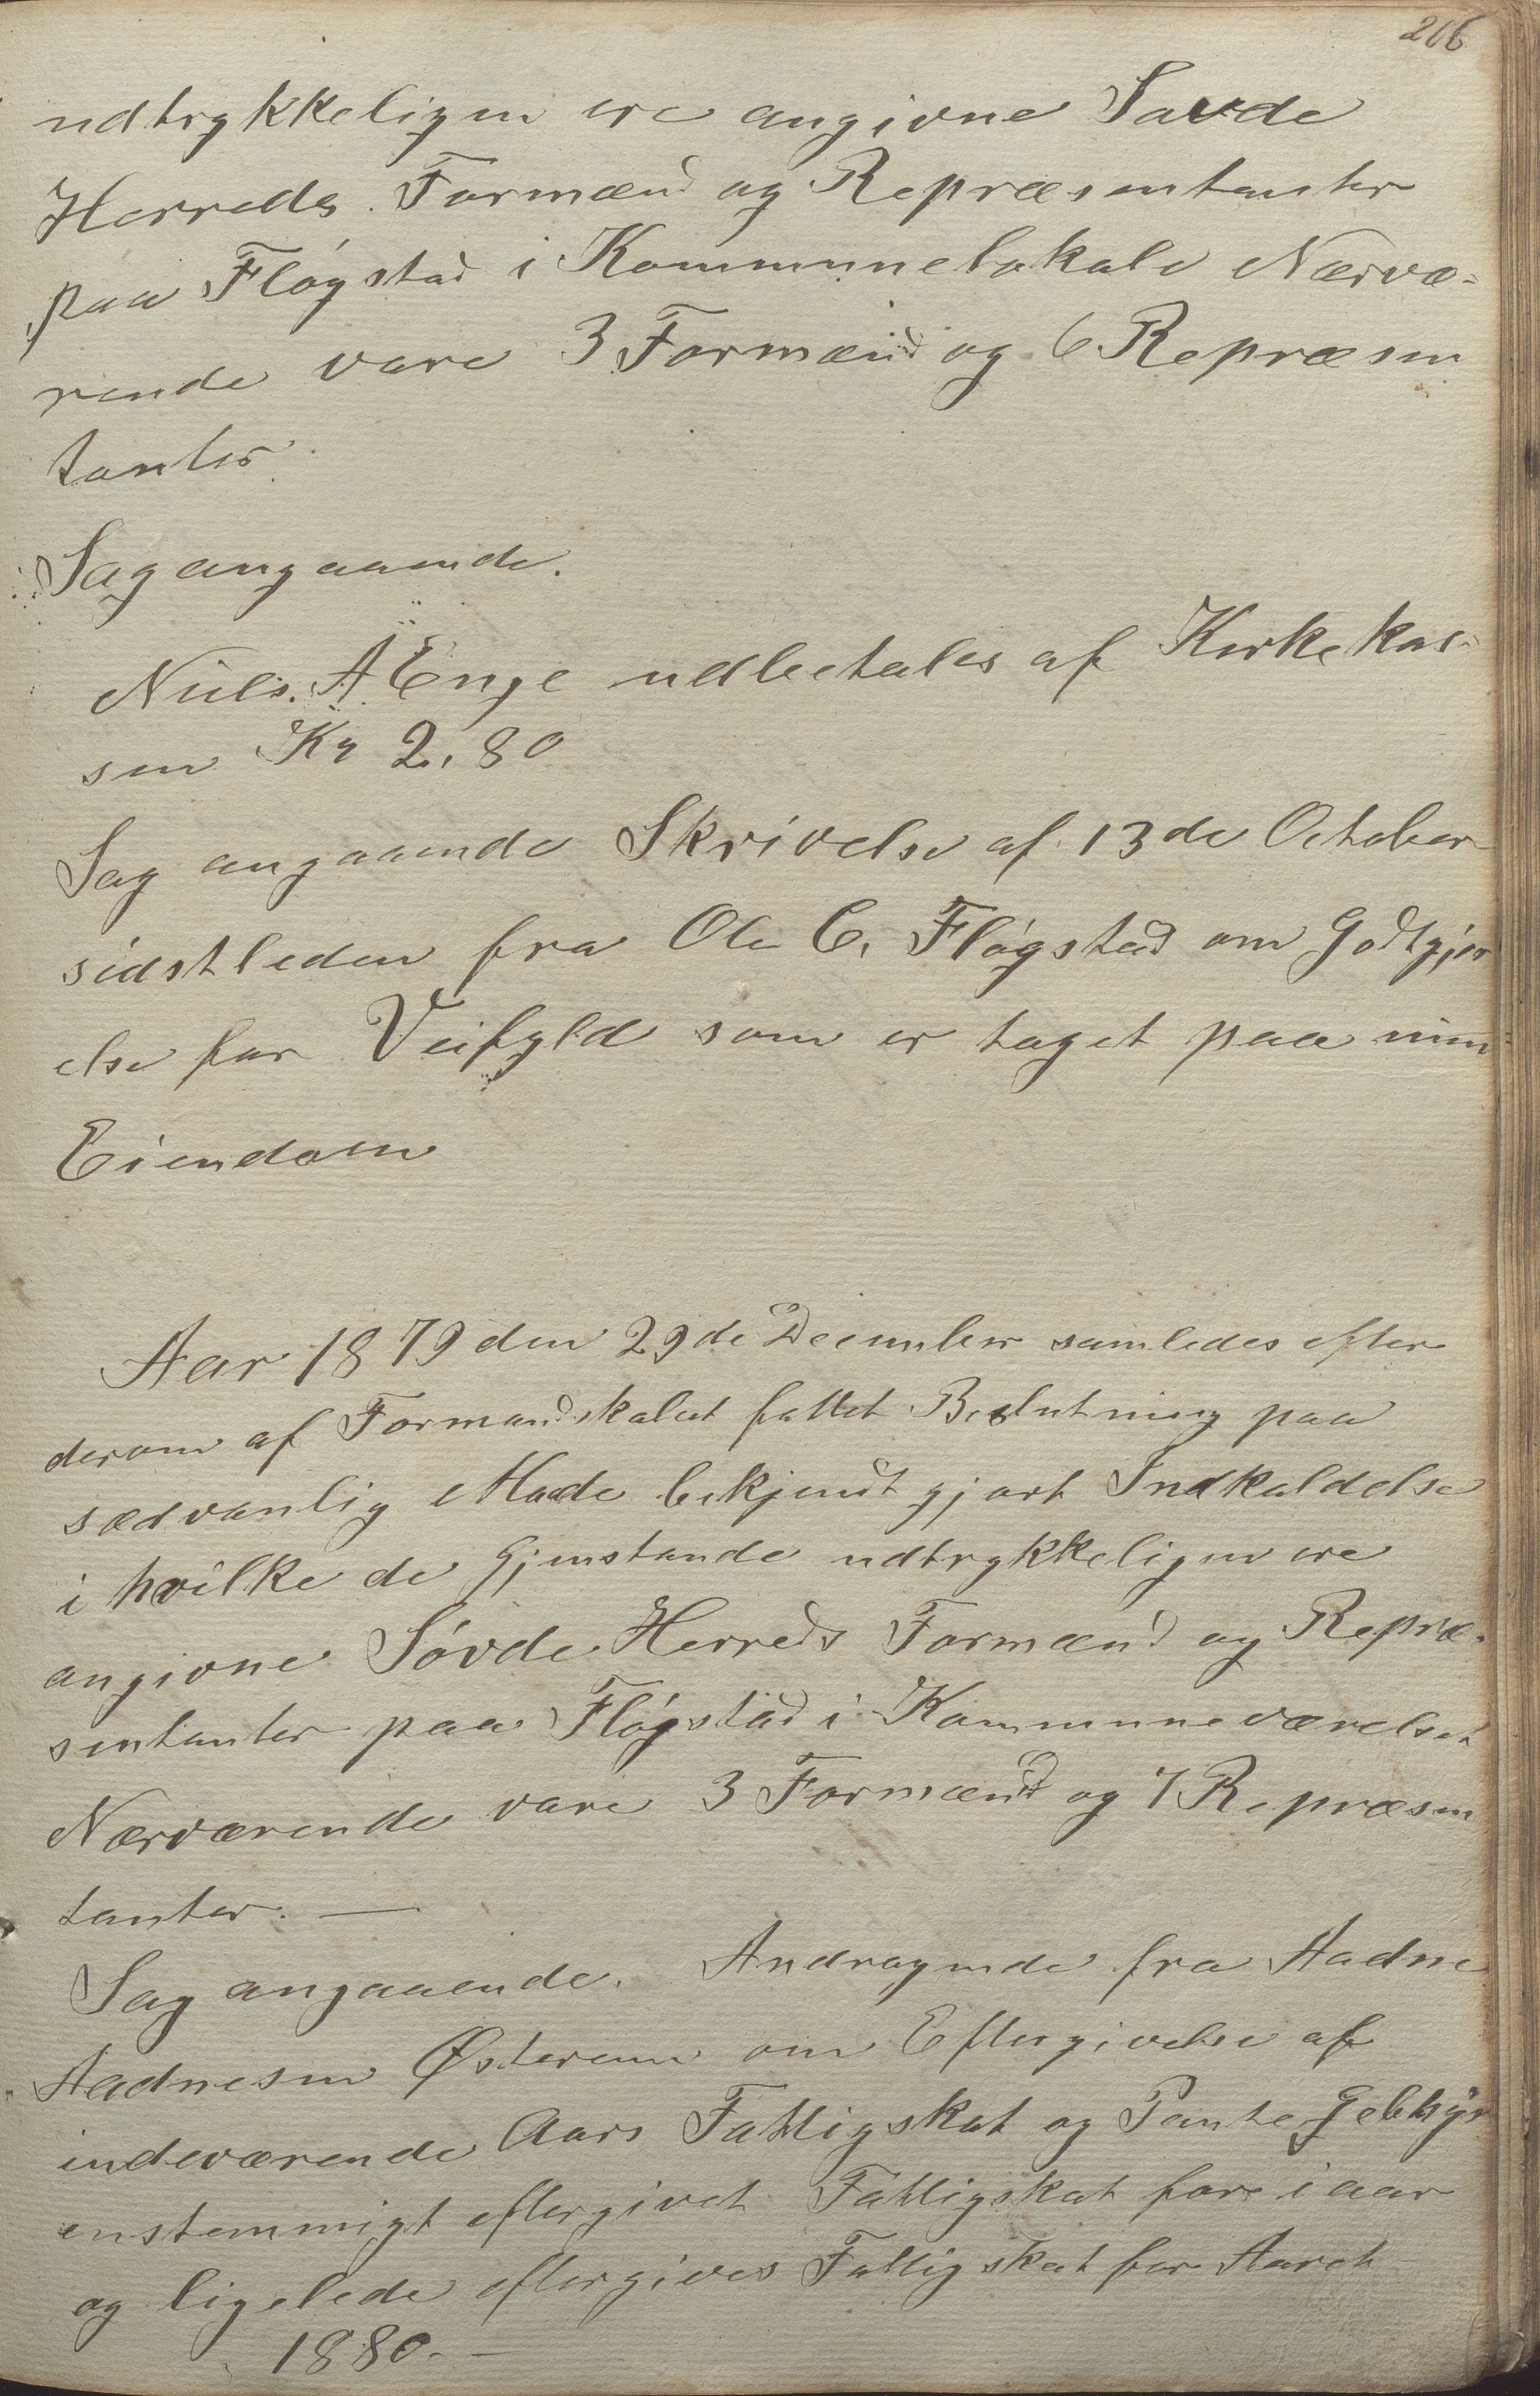 216
udtrykkeligen ere angivne Savde
Herreds Formænd og Repræsentanter
paa Fløgstad i Kommunelokale Nærvæ-
rende vare 3 Formænd og 6 Repræsen
tanter.
Sag angaaende.
Niels. A Enge udbetales af Kirkekas-
sen Kr 2,80
Sag angaaende Skrivelse af 13de October
sidstleden fra Ole C. Fløgstad om Godtgjør
else for Veifyld som er taget paa min
Eiendom
Aar 1879 den 29de December samledes efter
derom af Formandskabet fattet Beslutning paa
sædvanlig Maade bekjendtgjort Indkaldelse
i hvilke de Gjenstande udtrykkeligen ere
angivne Søvde Herreds Formænd og Repræ-
sentanter paa Fløgstad i Kommuneværelset
Nærværende vare 3 Formænd og 7 Repræsen
tanter. —
Sag angaaende. Andragende fra Aadne
Aadnesen Østerem om Eftergivelse af
indeværende Aars Fattigskat og Pante Gebhyr
enstemmigt eftergivet Fattigskat for i aar
og ligelede eftergives Fattigskat for Aaret
1880. —